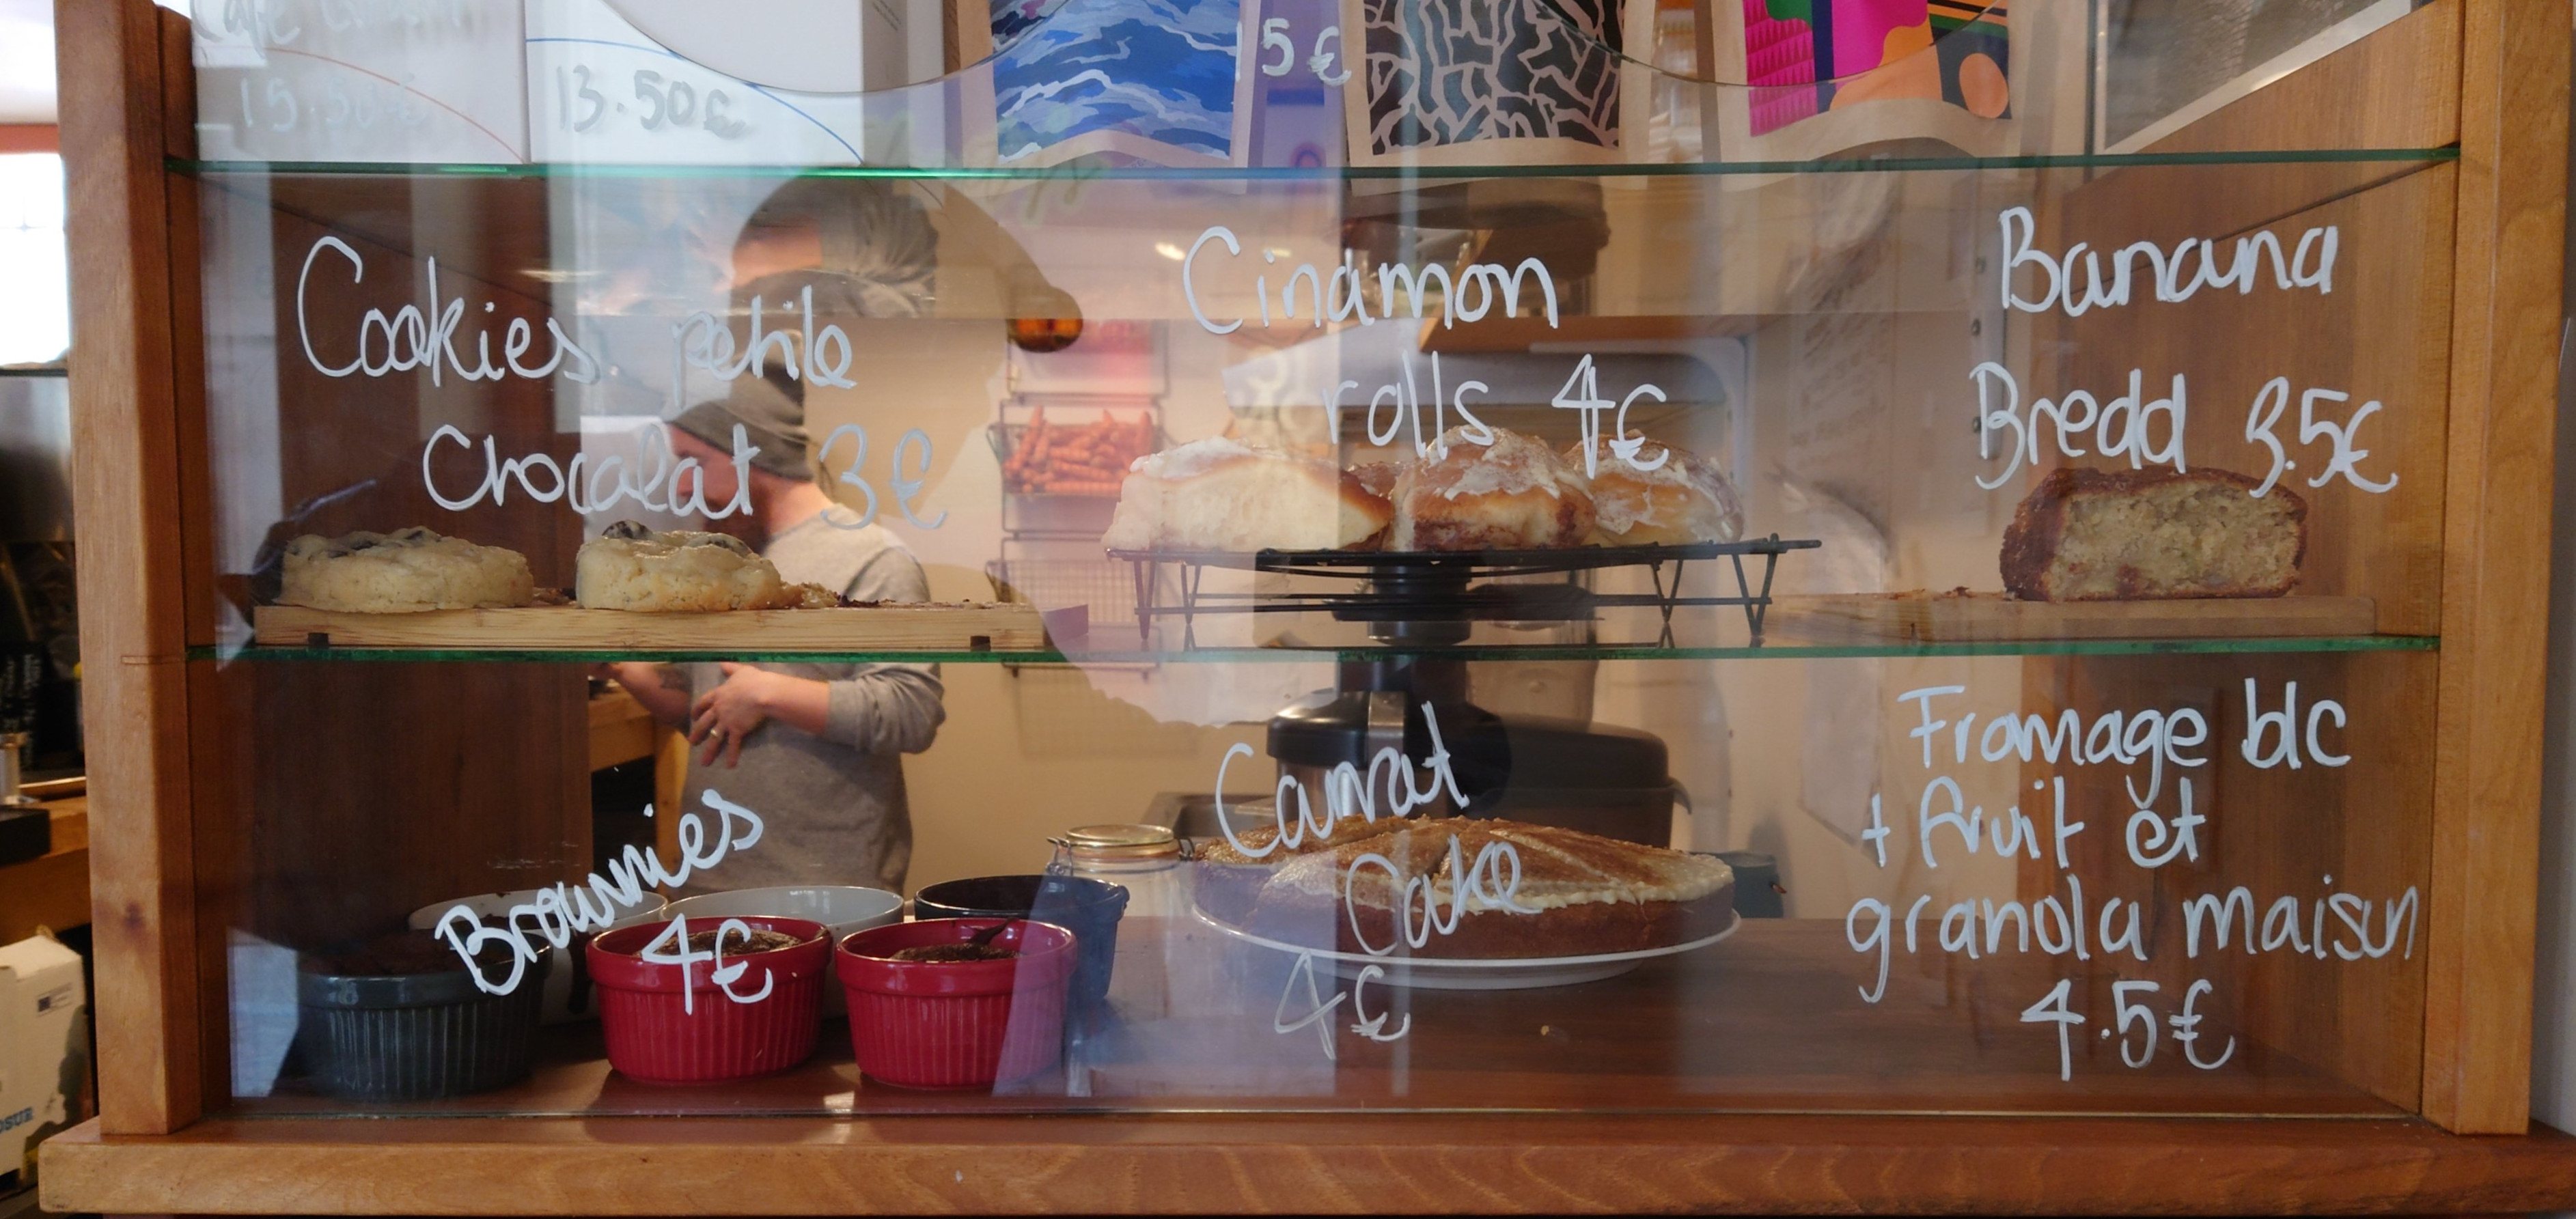 15.50€
13.50€
15€
Cookies pepite
Chocolat 3€
Cinamon
rolls 4€
Banana
Bread 3.5€
Brownies
4€
Carrot
Cake
4€
Fromage blc
+ fruit et
granola maison
4.5€